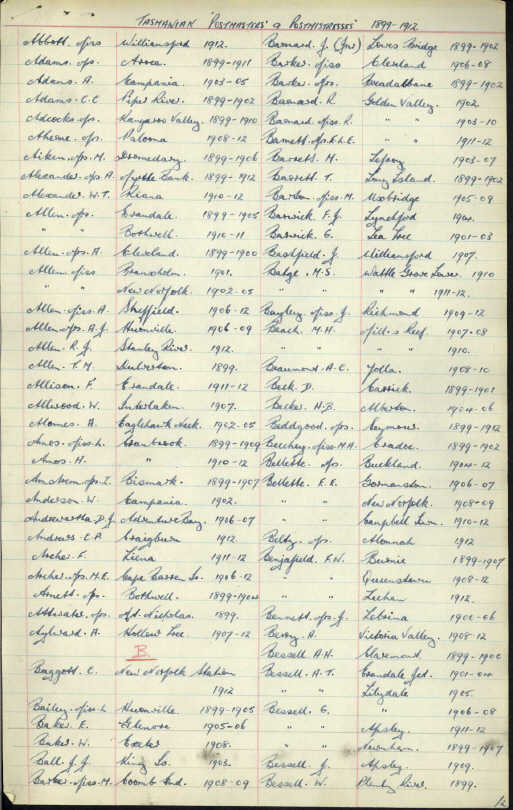 TASMANIAN 'POSTMASTERS' & POSTMISTRESSES' 1899-1912
Abbott. Miss Williamsford 1912.
Adams. Mrs. Avoca. 1899-1911
Adams. A. Campania. 1903-05
Adams. C.C Piper River. 1899-1902
Adcock. Mrs Kangaroo Valley. 1899-1910
Ahearne. Mrs. Paloona 1908-12
Aitken. Mrs. M. Dromedary. 1899-1906
Alexander. Mrs. A Myrtle Bank. 1899-1912
Alexander. W.T. Riana 1910-12
Allen. Mrs. Evandale. 1899-1905
" " Bothwell. 1910-11
Allen. Mrs. A. Cleveland. 1899-1900
Allen. Miss Branxholm. 1901.
" " New Norfolk. 1902-05
Allen. Miss. A. Sheffield. 1906-12
Allen. Mrs. A.J Huonville 1906-09
Allen. R.J. Stanley River. 1912.
Allen. T.M. Ulverston. 1899.
Allison. F. Evandale. 1911-12
Allwood. W. Interlaken. 1907.
Alomes. A. Eaglehawk Neck. 1902-05
Amos. Miss. L. Cranbrook. 1899-1909
Amos. H. " 1910-12
Bismark. 1899-1907
Anderson. W. Campania. 1902.
Andrewartha D.J Adventure Bay. 1906-07
Andrews. E.P. Craigburn 1912.
Archer. F. Liena 1911-12
Archer. Mrs. M.E. Cape Barren Is. 1906-12
Arnett. Mrs. Bothwell. 1899-1904
Attwater. Mrs. Mt. Nicholas. 1899.
Aylward. A. Hollow Tree. 1907-12
B.
Baggott. C. New Norfolk Station
1912
Bailey. Miss. L Huonville 1899-1905
Baker. E. Glenora 1905-06
Baker. W. Exeter 1908.
Ball. J.J King Is. 1903.
Barber. Miss. M. Coombe End. 1908-09
Barnard. J. (Jnr) Lewis Bridge 1899-1902
Barker. Miss Cleveland 1906-08
Barker. Mrs. Breadalbane 1899-1902
Barnard. R. Golden Valley. 1902
Barnard. Miss. R. " " 1903-10
Barnett. Mrs. E.L.E. " " 1911-12
Barrett. M. Lefroy 1903-07
Barrett. T. Long Island. 1899-1902
Miss. M. 1905-09
Barwick. F.J. Lynchford 1904.
Barwick. G. Tea Tree 1901-03
J. Williamsford 1907.
M.S. Wattle Grove Lower. 1910
" " " " 1911-12.
Bayley. Miss. J. Richmond 1909-12
Beach. M.H. Reef. 1907-08
" " 1910.
Beaumont. A.E. Yolla. 1908-10
Beck. D. Carrick. 1899-1901
Becker. H.B. Alberton. 1904-06
Beddgood. Mrs. Seymour. 1899-1912
Miss. M.A. Exeter. 1899-1902
Bellette. Mrs. Buckland. 1904-12
Bellette. E.E. Gormanston. 1906-07
" " New Norfolk. 1908-09
" " Campbell Town. 1910-12
Mrs. Alonnah 1912
Benjafield. F.W. Burnie 1899-1907
" " Queenstown 1908-12
" " 1912.
Bennett. Mrs. J. Lebrina 1900-06
A. Victoria Valley. 1908-12
Bessell A.H. Claremont 1899-1900
Bessell. A.T. Evandale Jcd. 1901-04
" " Lilydale 1905.
Bessell. G. " 1906-08
" " Apsley. 1911-12
" " Newnham. 1899-1907
Bessell. J. Apsley. 1909.
Bessell. W. Plenty River. 1899.